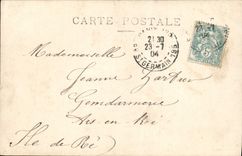 CARTE POSTALE
21 30
23-7
04
ST GERMAIN
5
Mademoiselle
Jeanne
Gendarmerie
Ars-en-Ré
Ile de Ré